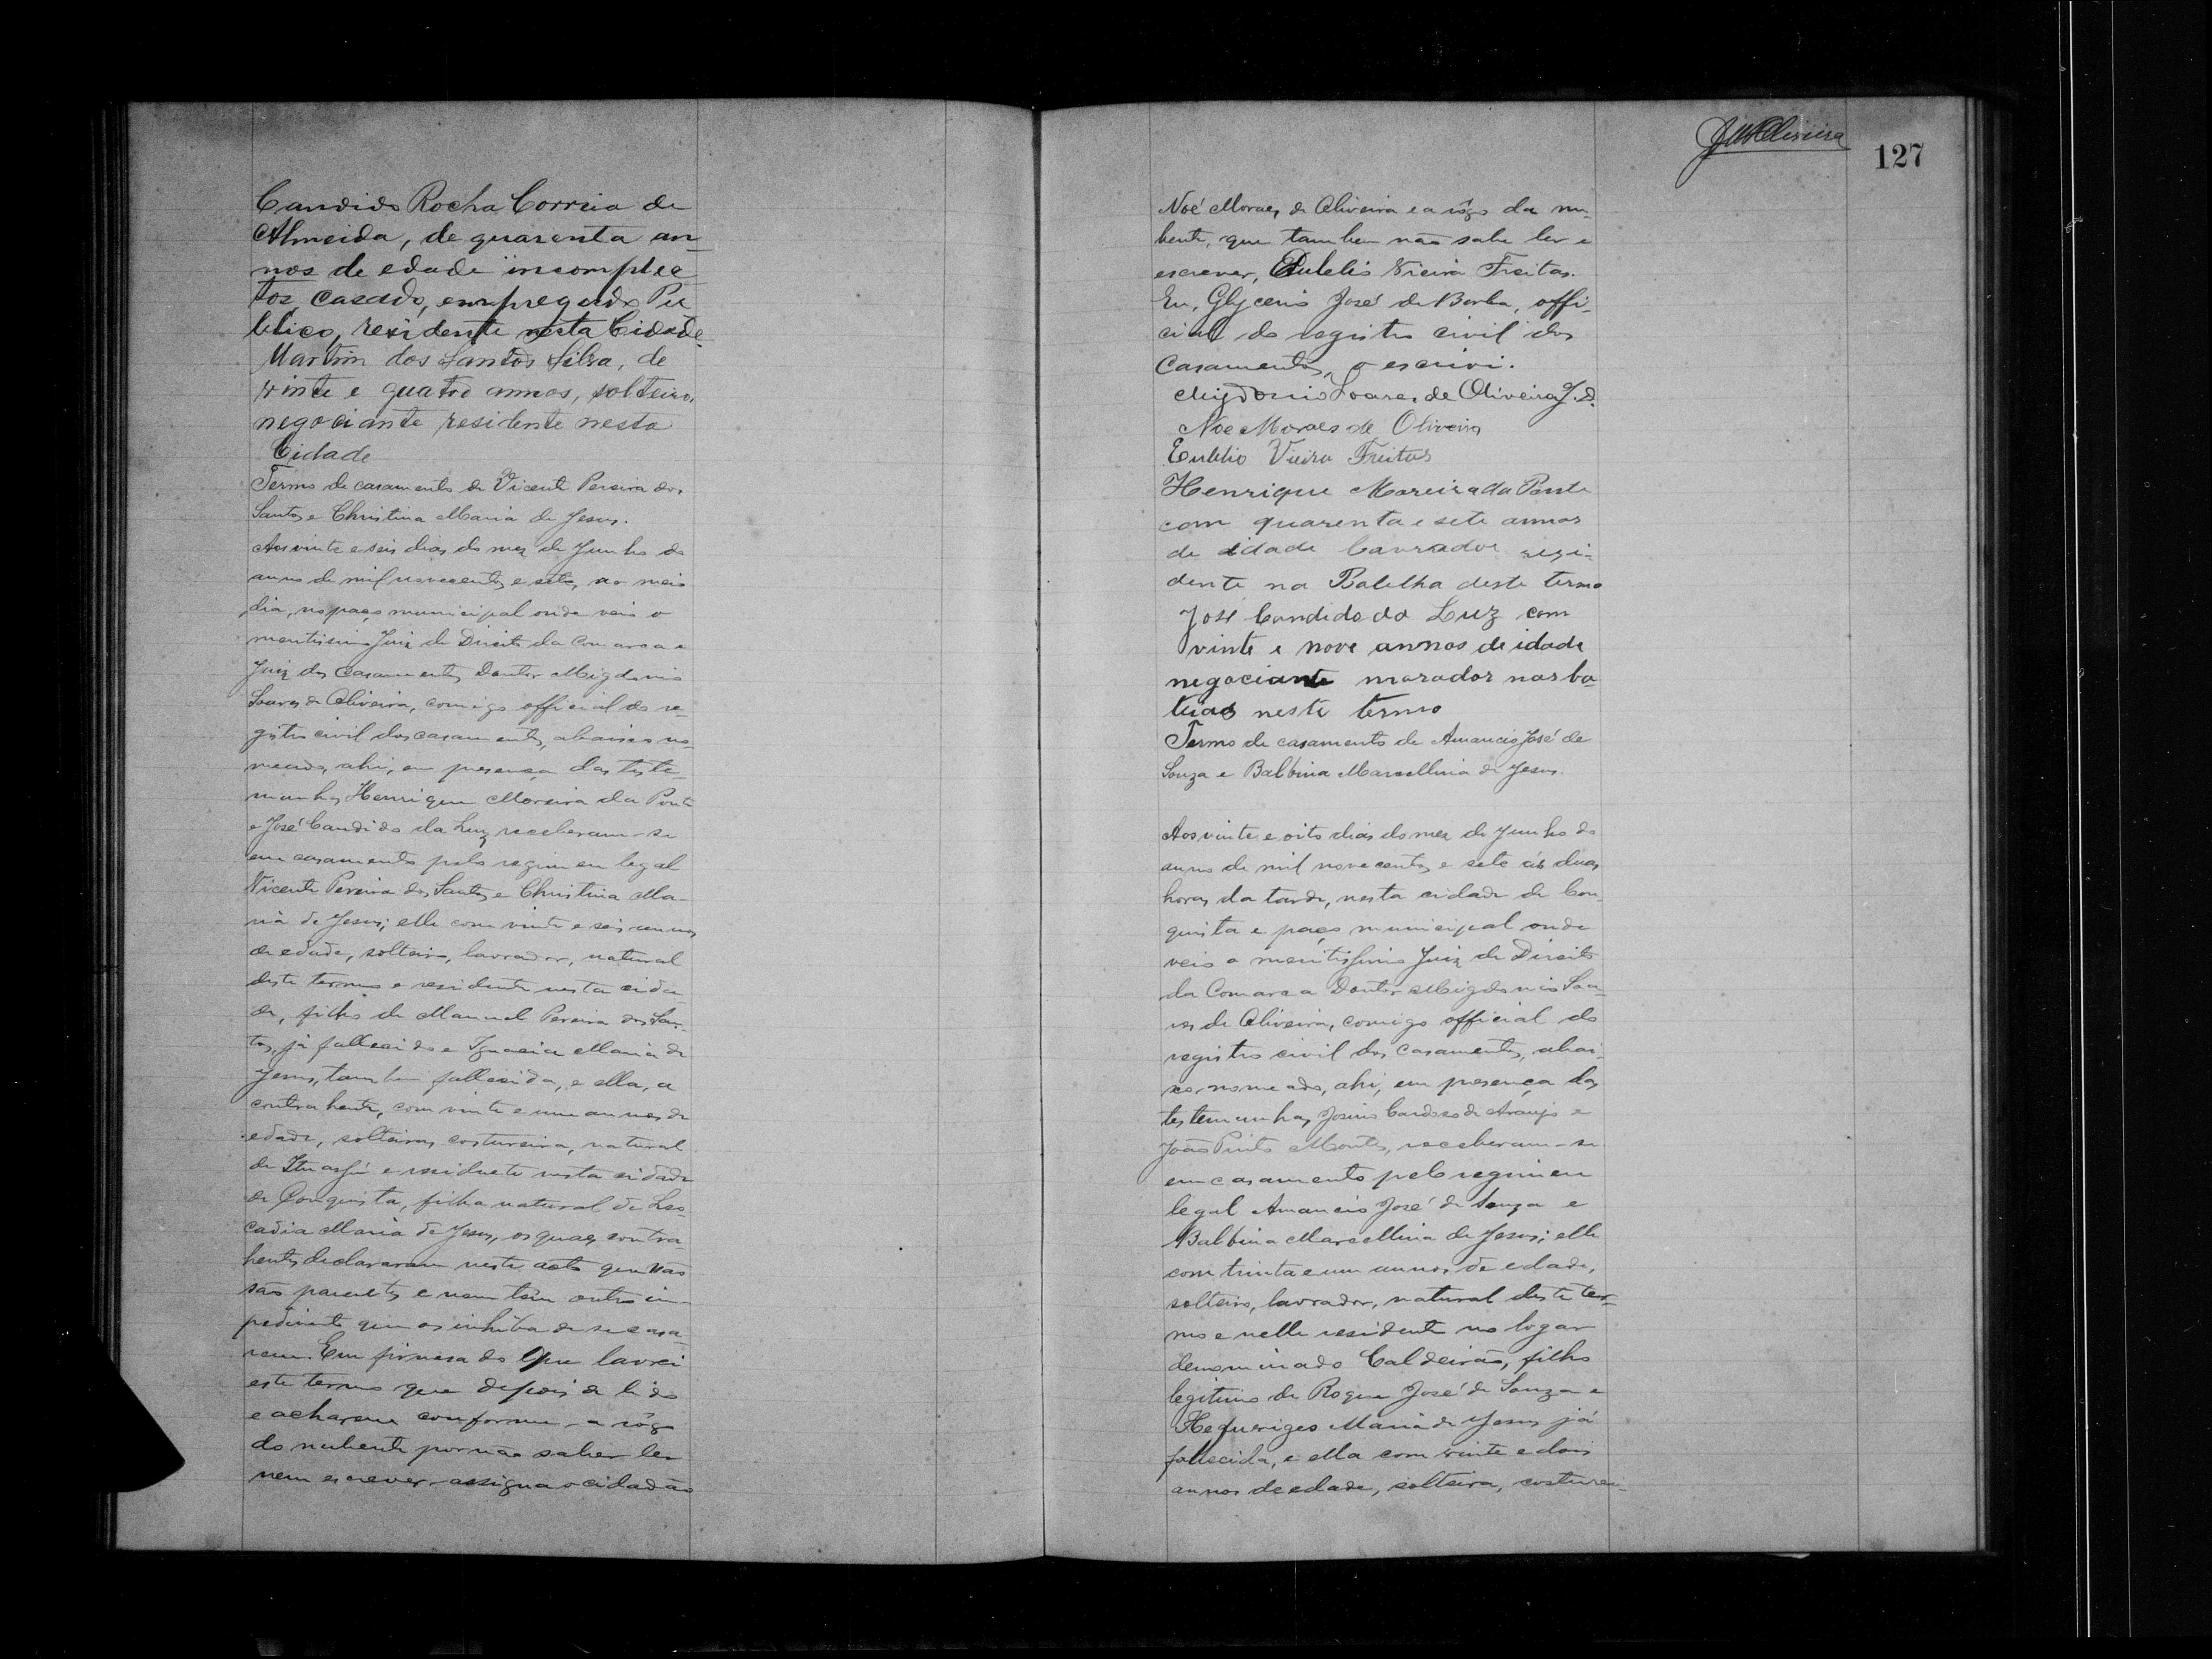 Candido Rocha Correia de
Almeida, de quarenta an-
nos de edade incomple
tos, casado, empregado Pu
blico, residente nesta Cidade.
Martim dos Santos Silva, de
vinte e quatro annos, solteiro,
negociante residente nesta
Cidade
Termo de casamento de Vicente Pereira dos
Santos e Christina Maria de Jesus.
Aos vinte e seis dias do mez de Junho do
anno de mil novecentos e sete, ao meio
dia, no paço municipal onde veio o
meritissimo Juiz de Direito da Comarca e
Juiz dos Casamentos Doutor Migdonio
Soares de Oliveira, comigo official do re-
gistro civil dos casamentos, abaixo no-
meado, ahi, em presença das teste-
munhas Henrique Moreira da Ponte
e José Candido da Luz receberam-se
em casamento pelo regimen legal
Vicente Pereira dos Santos e Christina Ma-
ria de Jesus; elle com vinte e seis annos
de edade, solteiro, lavrador, natural
deste termo e residente nesta cida-
de, filho de Manuel Pereira dos San-
tos, já fallecido e Ignacia Maria de
Jesus, tambem fallecida, e ella, a
contrahente, com vinte e um annos de
edade, solteira, costureira, natural
de Ituassú e residente nesta cidade
de Conquista, filha natural de Leo
cadia Maria de Jesus, os quaes contra-
hentes declararam neste acto que não
são parentes e nem têm outro im-
pedimento que os inhiba de se casa-
rem. Em firmesa do que lavrei
este termo que depois de lido
e acharem conforme, a rôgo
do nubente por não saber ler
nem escrever assigna o cidadão
127
Noé Moraes de Oliveira e a rôgo da nu-
bente, que tambem não sabe ler e
escrever, Eulelio Vieira Freitas.
Eu, Glycerio José de Borba, offi-
cial do registro civil dos
Casamentos, o escrivi.
Migdonio Soares de Oliveira J.D.
Noe Moraes de Oliveira
Eulelio Vieira Freitas
Henrique Moreira da Ponte
com quarenta e sete annos
de idade lavrador rezi-
dente na Batelha deste termo
José Candido da Luz com
vinte e nove annos de idade
negociante morador nas ba
teias neste termo
Termo de casamento de Amancio José de
Souza e Balbina Marcellina de Jesus.
Aos vinte e oito dias do mez de Junho do
anno de mil novecentos e sete ás duas
horas da tarde, nesta cidade de Con-
quista e paço municipal onde
veio o meritissimo Juiz de Direito
da Comarca Doutor Migdonio Soa-
res de Oliveira, comigo official do
registro civil dos Casamentos, abai-
xo nomeado, ahi, em presença das
testemunhas Josino Cardoso de Araujo e
João Pinto Montes, receberam-se
em casamento pelo regimen
legal Amancio José de Souza e
Balbina Marcellina de Jesus; elle
com trinta e um annos de edade,
solteiro, lavrador, natural deste ter-
mo e nelle residente no logar
denominado Caldeirão, filho
legitimo de Roque José de Souza e
Maria de Jesus já
fallecida, e ella com vinte e dois
annos de edade, solteira, costurei-